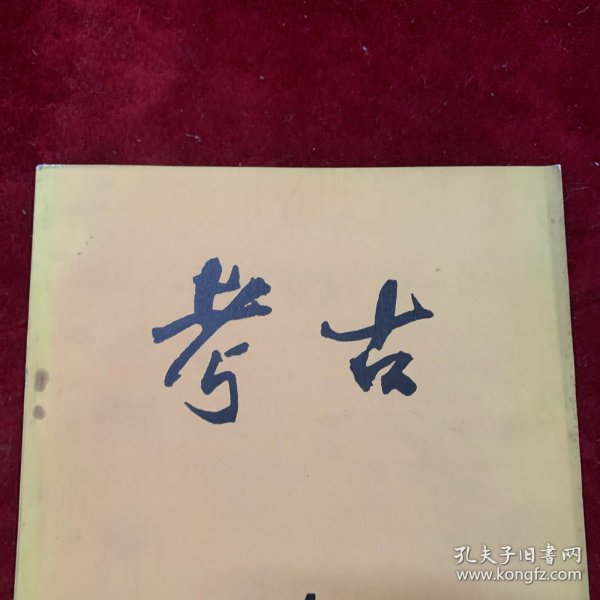 考古
孔夫子旧书网
www.kongfz.com